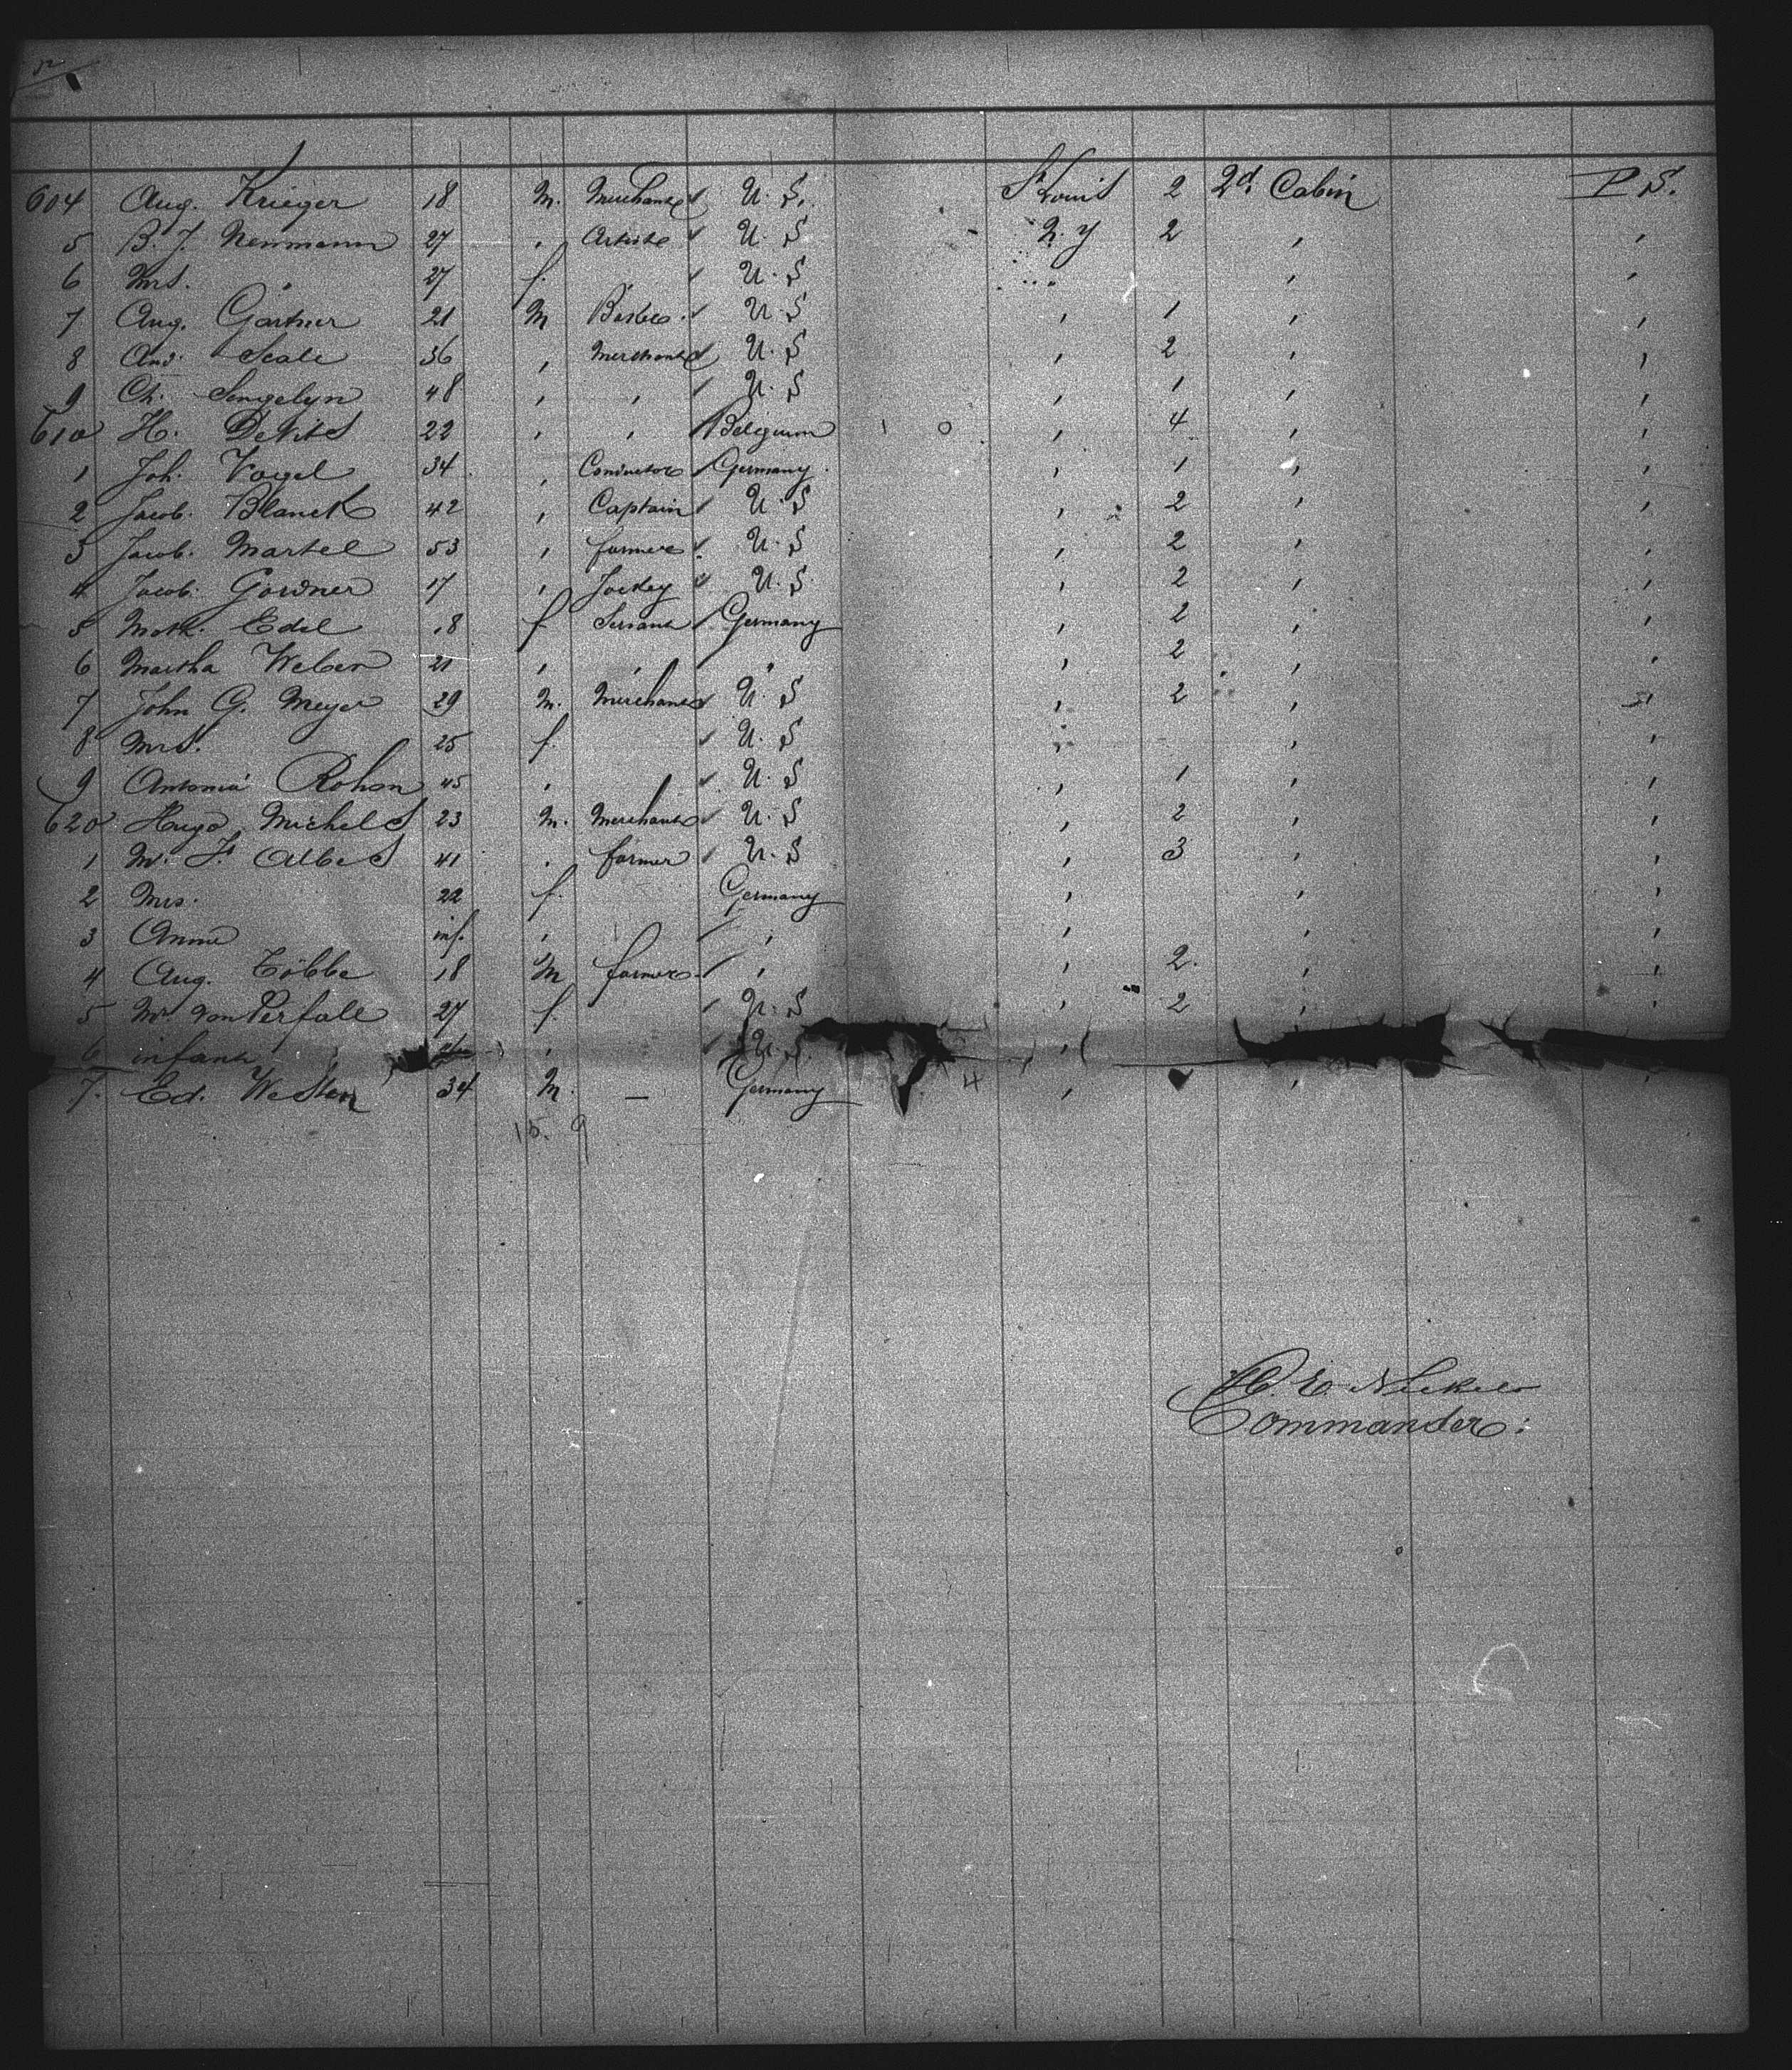 604 Aug. Krieger 18 M. Merchant U. S. St Louis 2 2d Cabin P. S.
5 B. J. Newmann 27 " Artist U. S N. Y 2 " "
6 Mrs. " 27 f. " U. S " " "
7 Aug. Gärtner 21 M Barber U. S " 1 " "
8 And. Scale 36 " Merchant U. S " 2 " "
9 Ch. Sengelyn 48 " " U. S " 1 " "
610 H. DeVits 22 " " Belgium 1 0 " 4 " "
1 Joh. Vogel 34 " Conductor Germany " 1 " "
2 Jacob. Blanck 42 " Captain U. S " 2 " "
3 Jacob. Martel 53 " farmer U. S " 2 " "
4 Jacob. Gordner 17 " Jockey U. S. " 2 " "
5 Math. Edel 18 f Servant Germany " 2 " "
6 Martha Weber 21 " " " " 2 " "
7 John G. Meyer 29 M. Merchant U. S " 2 " "
8 Mrs. 25 f. U. S " " "
9 Antonia Rohon 45 " U. S " 1 " "
620 Hugo Michels 23 M. Merchant U. S " 2 " "
1 Mr. Albes 41 " farmer U. S " 3 " "
2 Mrs. 22 f. Germany " " "
3 Anna inf. " " " " "
4 Aug. Többe 18 M farmer " " 2. " "
5 Mrs. von Perfall 27 f. U. S " 2 " "
6 infant " U. S. "
7. Ed. Westen 34 M. — Germany 4 " " "
15. 9
Commander: